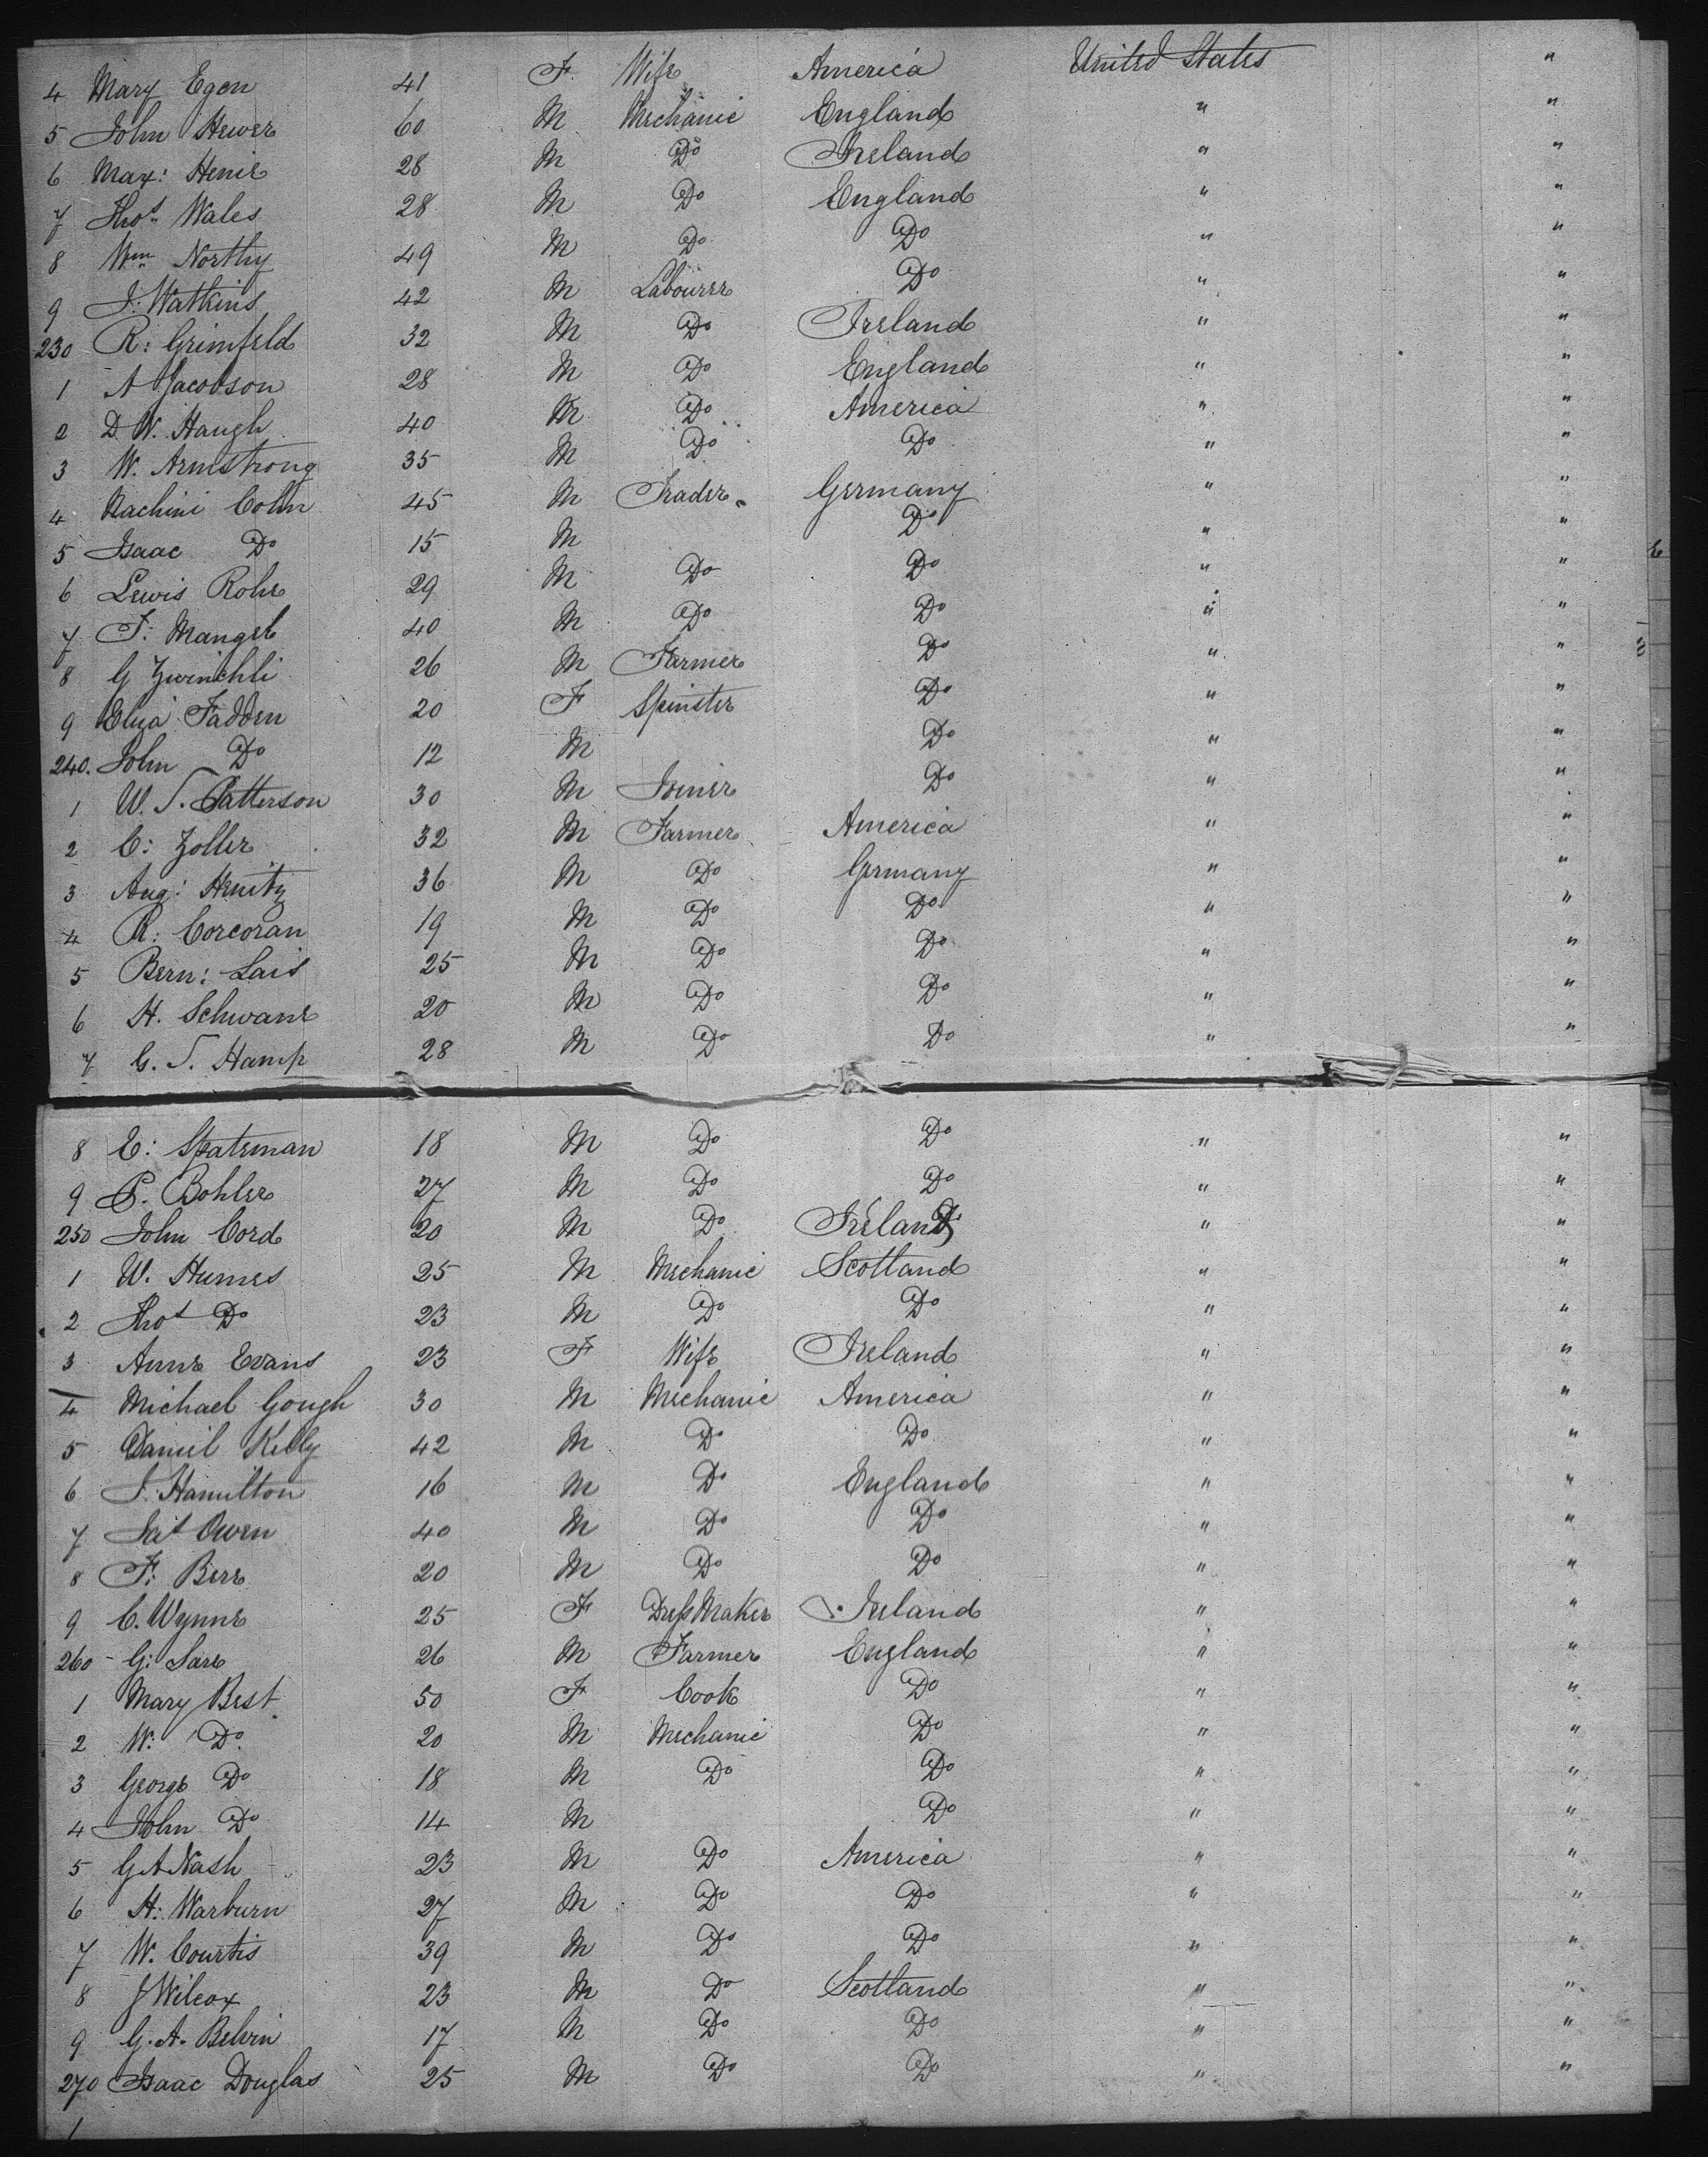 4 Mary Egen 41 F. Wife America United States "
5 John Hewer 60 M Mechanic England " "
6 Max: Henie 28 M Do Ireland " "
7 Thos Wales 28 M Do England " "
8 Wm Northy 49 M Do Do " "
9 J. Watkins 42 M Labourer Do " "
230 R: Grimfeld 32 M Do Ireland " "
1 A Jacobson 28 M Do England " "
2 D. W. Haugh 40 M Do America " "
3 W. Armstrong 35 M Do Do " "
4 Cohn 45 M Trader Germany " "
5 Isaac Do 15 M Do " "
6 Lewis Rohe 29 M Do Do " "
7 F: Mangel 40 M Do Do " "
8 G Zwinchli 26 M Farmer Do " "
9 Eliza Fadden 20 F Spinster Do " "
240. John Do 12 M Do " "
1 W. S. Patterson 30 M Joiner Do " "
2 C: Zoller 32 M Farmer America " "
3 Aug: Henitz 36 M Do Germany " "
4 R: Corcoran 19 M Do Do " "
5 Bern: Lais 25 M Do Do " "
6 H. Schwane 20 M Do Do " "
7 G. S. Hamp 28 M Do Do " "
8 E: Spateman 18 M Do Do " "
9 P. Bohler 27 M Do Do " "
250 John Cord 20 M Do Ireland " "
1 W. Humes 25 M Mechanic Scotland " "
2 Thos Do 23 M Do Do " "
3 Anne Evans 23 F Wife Ireland " "
4 Michael Gough 30 M Mechanic America " "
5 Daniel Kelly 42 M Do Do " "
6 J. Hamilton 16 M Do England " "
7 Owen 40 M Do Do " "
8 F: Bere 20 M Do Do " "
9 C. Wynne 25 F Dress Maker Ireland " "
260 G: Sare 26 M Farmer England " "
1 Mary Best 50 F Cook Do " "
2 W. Do 20 M Mechanic Do " "
3 George Do 18 M Do Do " "
4 John Do 14 M Do " "
5 G A Nash 23 M Do America " "
6 H: Warburn 27 M Do Do " "
7 W. Courtis 39 M Do Do " "
8 J Wilcox 23 M Do Scotland " "
9 G. A. Belvin 17 M Do Do " "
270 Isaac Douglas 25 M Do Do " "
1